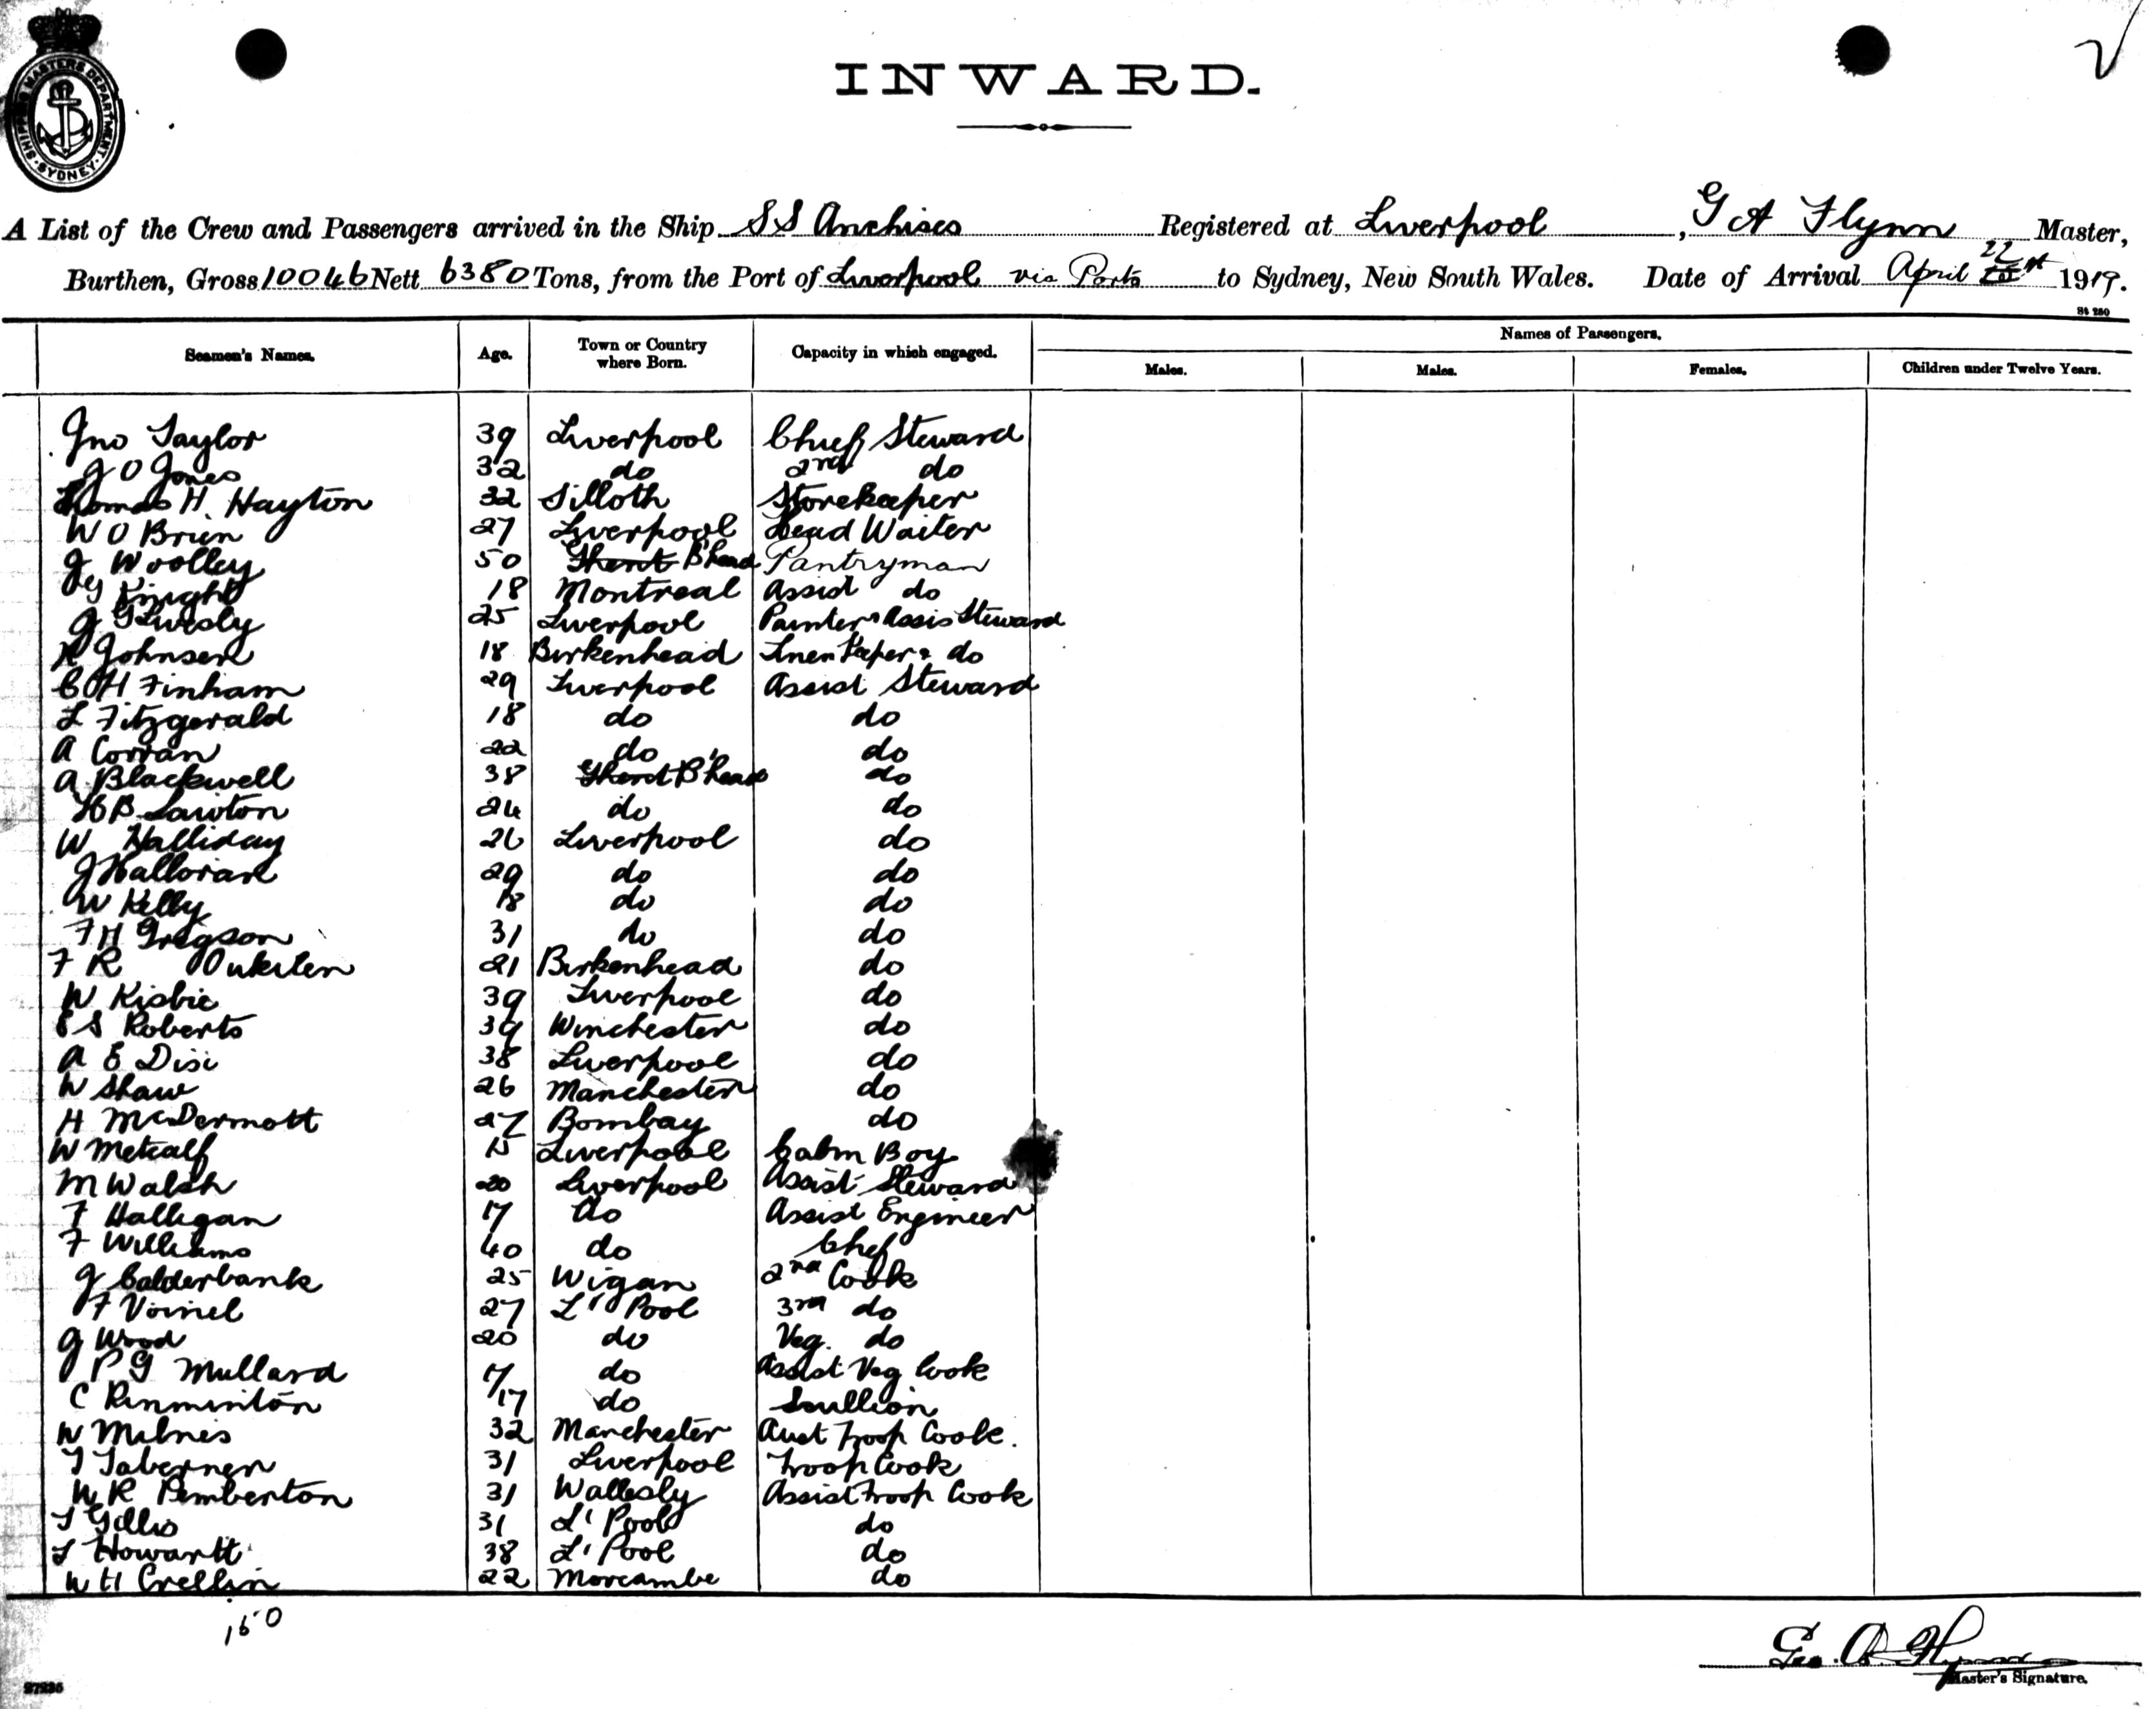 SHIPPING MASTERS DEPARTMENT. SYDNEY
INWARD.
A List of the Crew and Passengers arrived in the Ship SS Anchises Registered at Liverpool, G A Flynn Master,
Burthen, Gross 10046 Nett 6380 Tons, from the Port of Liverpool via Ports to Sydney, New South Wales. Date of Arrival April 22 1919.
Names of Passengers.
Seamen's Names. Age. Town or Country where Born. Capacity in which engaged. Males. Males. Females. Children under Twelve Years.
Jno Taylor 39 Liverpool Chief Steward
J O Jones 32 do 2nd do
Thomas H. Hayton 32 Silloth Storekeeper
W O Brien 27 Liverpool Head Waiter
J Woolley 50 B'head Pantryman
Knight 18 Montreal Assist do
J 25 Liverpool Painter & Assis Steward
Johnson 18 Birkenhead Linen Keeper & do
C H Finham 29 Liverpool Assist Steward
L Fitzgerald 18 do do
A Corran 22 do do
A Blackwell 38 B'head do
H B Lawton 24 do do
W Halliday 26 Liverpool do
J Halloran 29 do do
W Kelly 18 do do
F H Gregson 31 do do
F R 21 Birkenhead do
W Kisbie 39 Liverpool do
E S Roberts 39 Winchester do
A E Disi 38 Liverpool do
W Shaw 26 Manchester do
H McDermott 27 Bombay do
W Metcalf 15 Liverpool Cabin Boy
M Walsh 20 Liverpool Assist Steward
F Halligan 17 do Assist Engineer
F Williams 40 do Chef
J Calderbank 25 Wigan 2nd Cook
F Voinel 27 L'Pool 3rd do
G Wood 20 do Veg. do
P G Mullard 17 do Assist Veg Cook
C Rinminton 17 do Scullion
W Milnes 32 Manchester Aust Troop Cook.
T Taberner 31 Liverpool Troop Cook
W R Pemberton 31 Wallesly Assist Troop Cook
T Gillis 31 L'Pool do
L Howartt 38 L'Pool do
W H Crellin 22 Morcambe do
150
Geo. A. Flynn
Master's Signature.